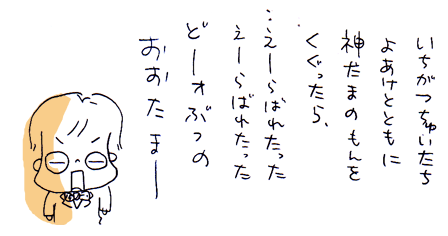 いちがつちゅいたち
よあけとともに
神だまのもんを
くぐったら、
…えーらばれたった
えーらばれたった
どーォぶつの
おおたまー